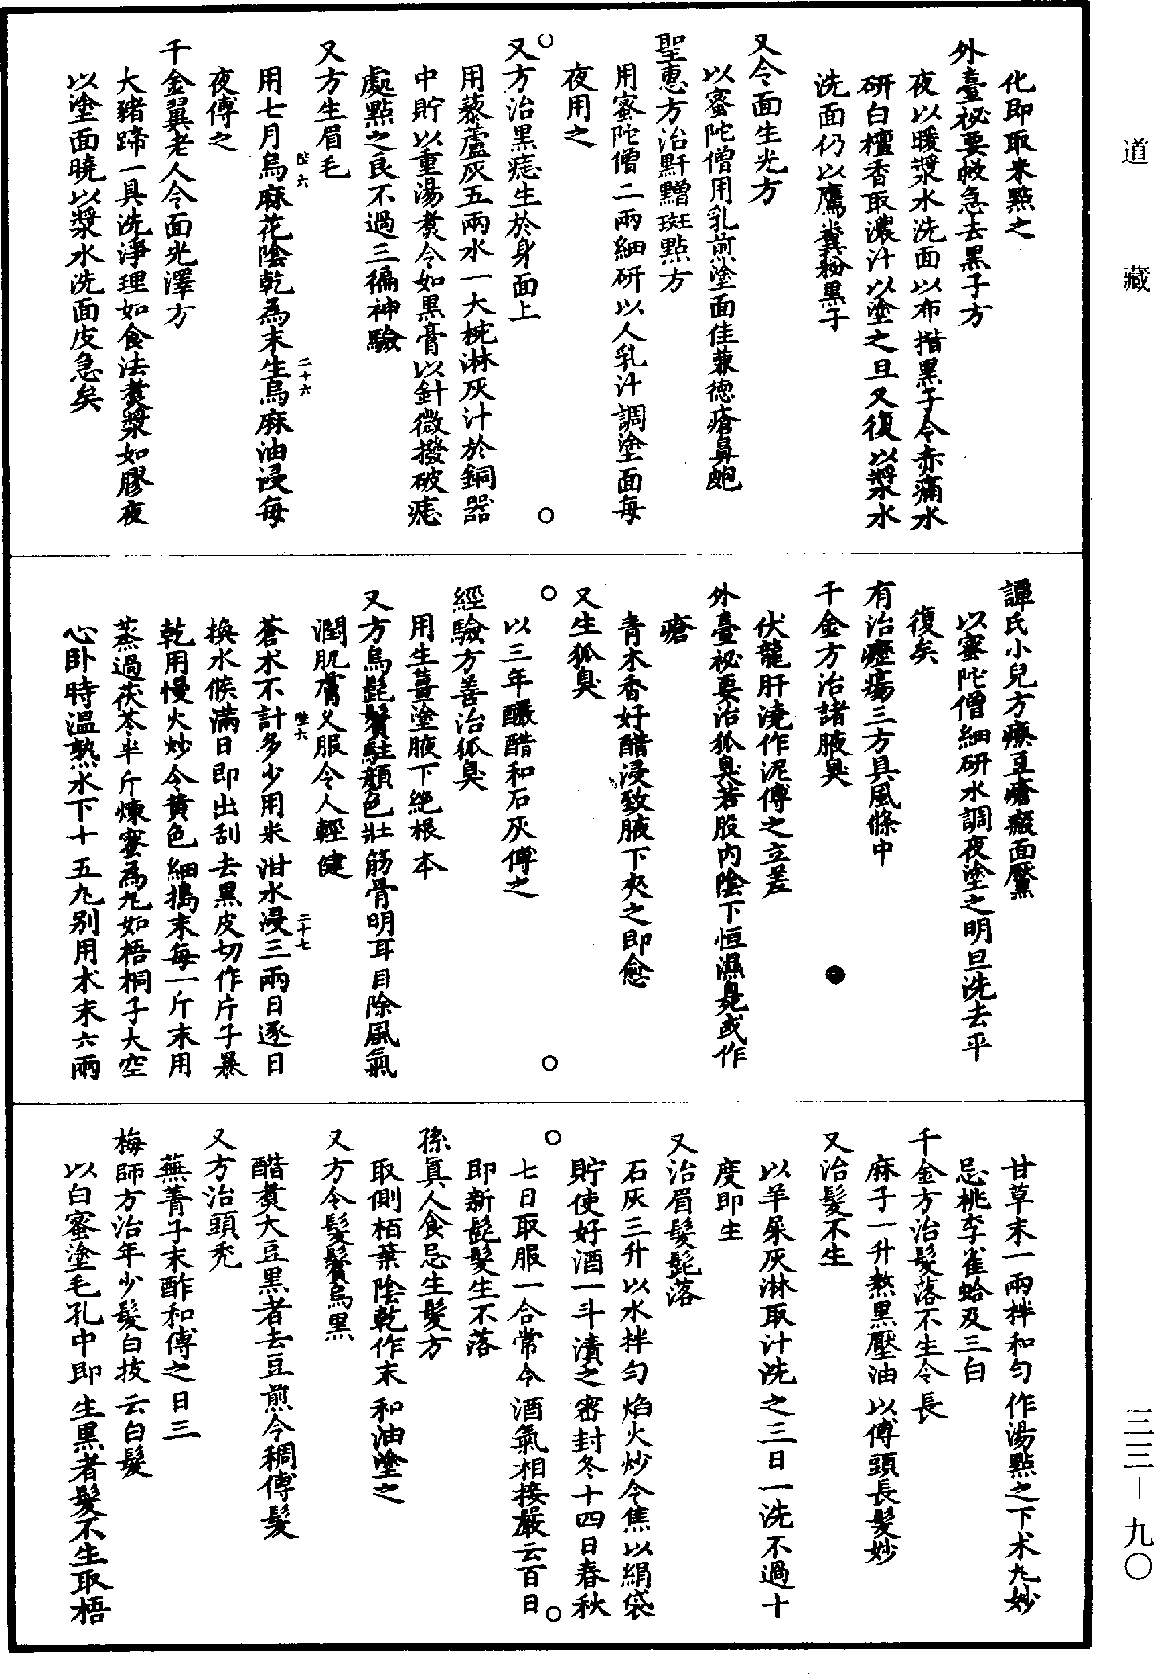 道藏
化即取米點之
外臺祕要救急去黑子方
夜以暖漿水洗面以布揩黑子令赤痛水
研白檀香取濃汁以塗之旦又復以漿水
洗面仍以鷹糞粉黑子
又令面生光方
以蜜陀僧用乳煎塗面佳兼徳瘡鼻皰
聖惠方治䵟䵳斑點方
用蜜陀僧二兩細研以人乳汁調塗面每
夜用之
又方治黑痣生於身面上
用藜蘆灰五兩水一大椀淋灰汁於銅器
中貯以重湯煑令如黑膏以針微撥破痣
處點之良不過三徧神驗
又方生眉毛
用七月烏麻花陰乾為末生烏麻油浸每
夜傅之
千金翼老人令面光澤方
大豬蹄一具洗淨理如食法煑漿如膠夜
以塗面曉以漿水洗面皮急矣
譚氏小兒方療豆瘡瘢面黶
以蜜陀僧細研水調夜塗之明旦洗去平
復矣
有治癧瘍三方具風條中
千金方治諸腋臭
伏龍肝澆作泥傅之立差
外臺祕要治狐臭若股内陰下恒濕臭或作
瘡
青木香好醋浸致腋下夾之即愈
又生狐臭
以三年釅醋和石灰傅之
經驗方善治狐臭
用生薑塗腋下絶根本
又方烏髭鬢駐顏色壯筋骨明耳目除風氣
潤肌膚久服令人輕健
蒼术不計多少用米泔水浸三兩日逐日
換水候滿日即出刮去黑皮切作片子暴
乾用慢火炒令黄色細搗末每一斤末用
蒸過茯苓半斤煉蜜為丸如梧桐子大空
心卧時温熟水下十五丸别用术末六兩
甘草末一兩拌和匀作湯點之下术丸妙
忌桃李雀蛤及三白
千金方治髮落不生令長
麻子一升熬黑壓油以傅頭長髮妙
又治髮不生
以羊屎灰淋取汁洗之三日一洗不過十
度即生
又治眉髮髭落
石灰三升以水拌匀焰火炒令焦以絹袋
貯使好酒一斗漬之密封冬十四日春秋
七日取服一合常令酒氣相接嚴云百日
即新髭髮生不落
孫真人食忌生髮方
取側栢葉陰乾作末和油塗之
又方令髮鬢烏黑
醋煑大豆黑者去豆煎令稠傅髮
又方治頭禿
蕪菁子末酢和傅之日三
梅師方治年少髮白拔去白髮
以白蜜塗毛孔中即生黑者髮不生取梧
三三－九〇